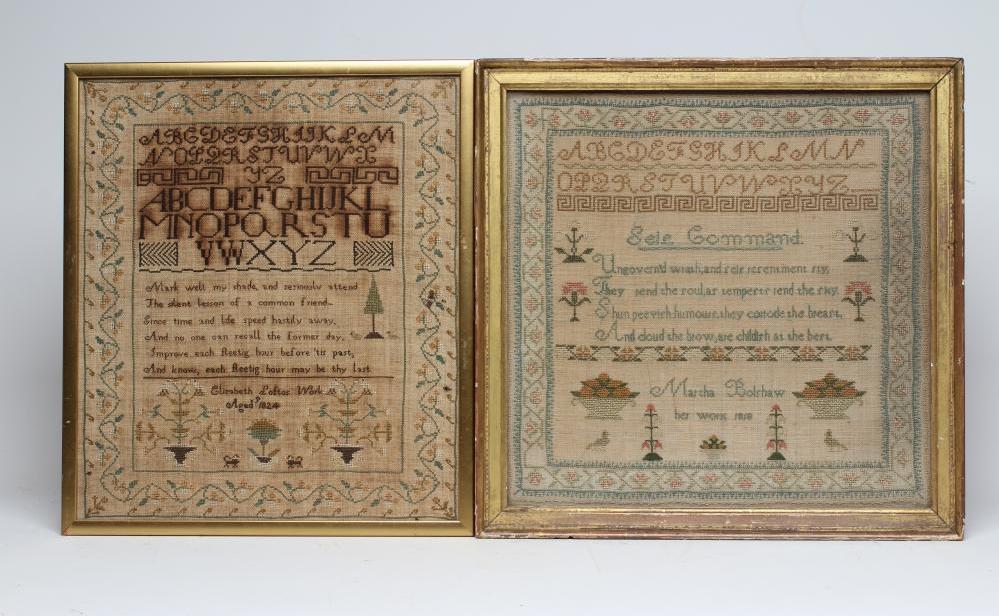 ABCDEFGHIJKLMN
NOPQRSTUVWX
YZ
ABCDEFGHIJKL
MNOPQRSTU
VWXYZ
Mark well my shade and seriously attend
The silent lesson of a common friend
Since time and life speed hastily away
And no one can recall the former day,
Improve each fleetig hour before 'tis past,
And know, each fleetig hour may be thy last
Elizabeth Loftas Work
Aged 9 1824
ABCDEFGHIJKLMN
OPQRSTUVWXYZ
Command.
Ungovern'd wrath, and
They rend the soul, as tempests rend the sky,
Shun peevish humours, they corrode the breast,
And cloud the brow, are childish at the best.
Martha Bolshaw
her work 1818